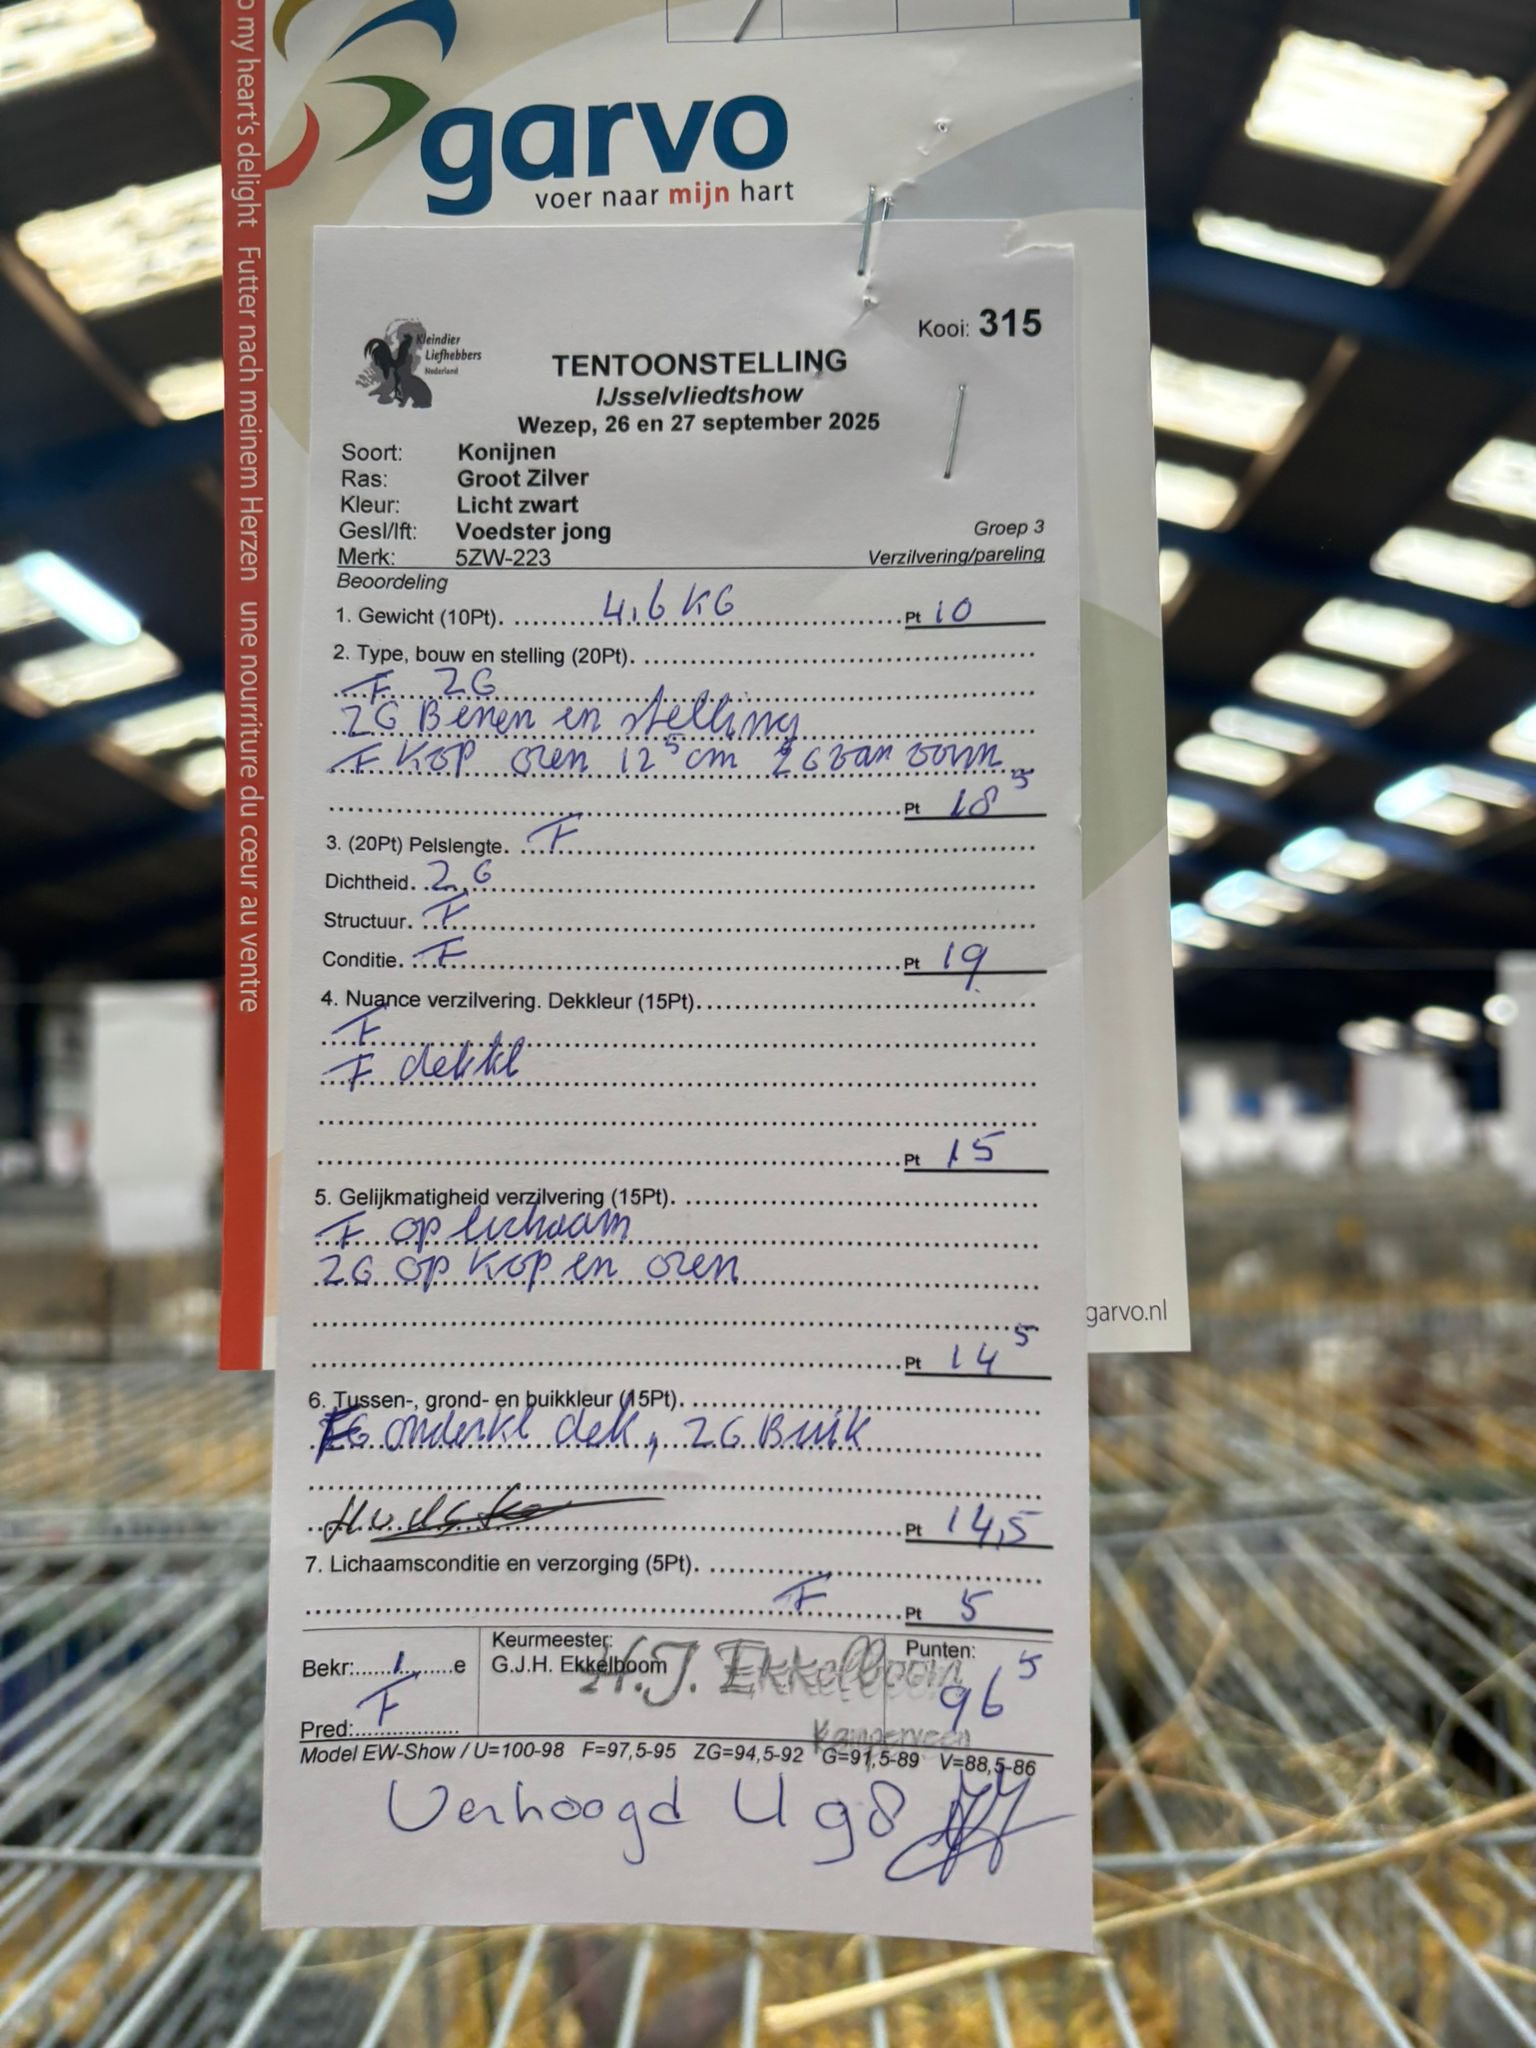 o my heart's delight Futter nach meinem Herzen une nourriture du cœur au ventre
garvo
voer naar mijn hart
Kleindier
Liefhebbers
Nederland
Kooi: 315
TENTOONSTELLING
IJsselvliedtshow
Wezep, 26 en 27 september 2025
Soort: Konijnen
Ras: Groot Zilver
Kleur: Licht zwart
Gesl/lft: Voedster jong
Groep 3
Merk: 5ZW-223
Verzilvering/pareling
Beoordeling
1. Gewicht (10Pt). 4,6 KG Pt 10
2. Type, bouw en stelling (20Pt).
F ZG
ZG Benen en stelling
F Kop oren 12⁵ cm ZG van vorm
Pt 18⁵
3. (20Pt) Pelslengte. F
Dichtheid. ZG
Structuur. F
Conditie. F Pt 19
4. Nuance verzilvering. Dekkleur (15Pt).
F
F dekkl
Pt 15
5. Gelijkmatigheid verzilvering (15Pt).
F op lichaam
ZG op Kop en oren
Pt 14⁵
6. Tussen-, grond- en buikkleur (15Pt).
onderkl dek, ZG Buik
Pt 14,5
7. Lichaamsconditie en verzorging (5Pt).
F Pt 5
Bekr: 1 e
Keurmeester:
G.J.H. Ekkelboom
H.J. Ekkelboom
Kamperveen
Punten:
96⁵
Pred: F
Model EW-Show / U=100-98 F=97,5-95 ZG=94,5-92 G=91,5-89 V=88,5-86
Verhoogd U 98
garvo.nl